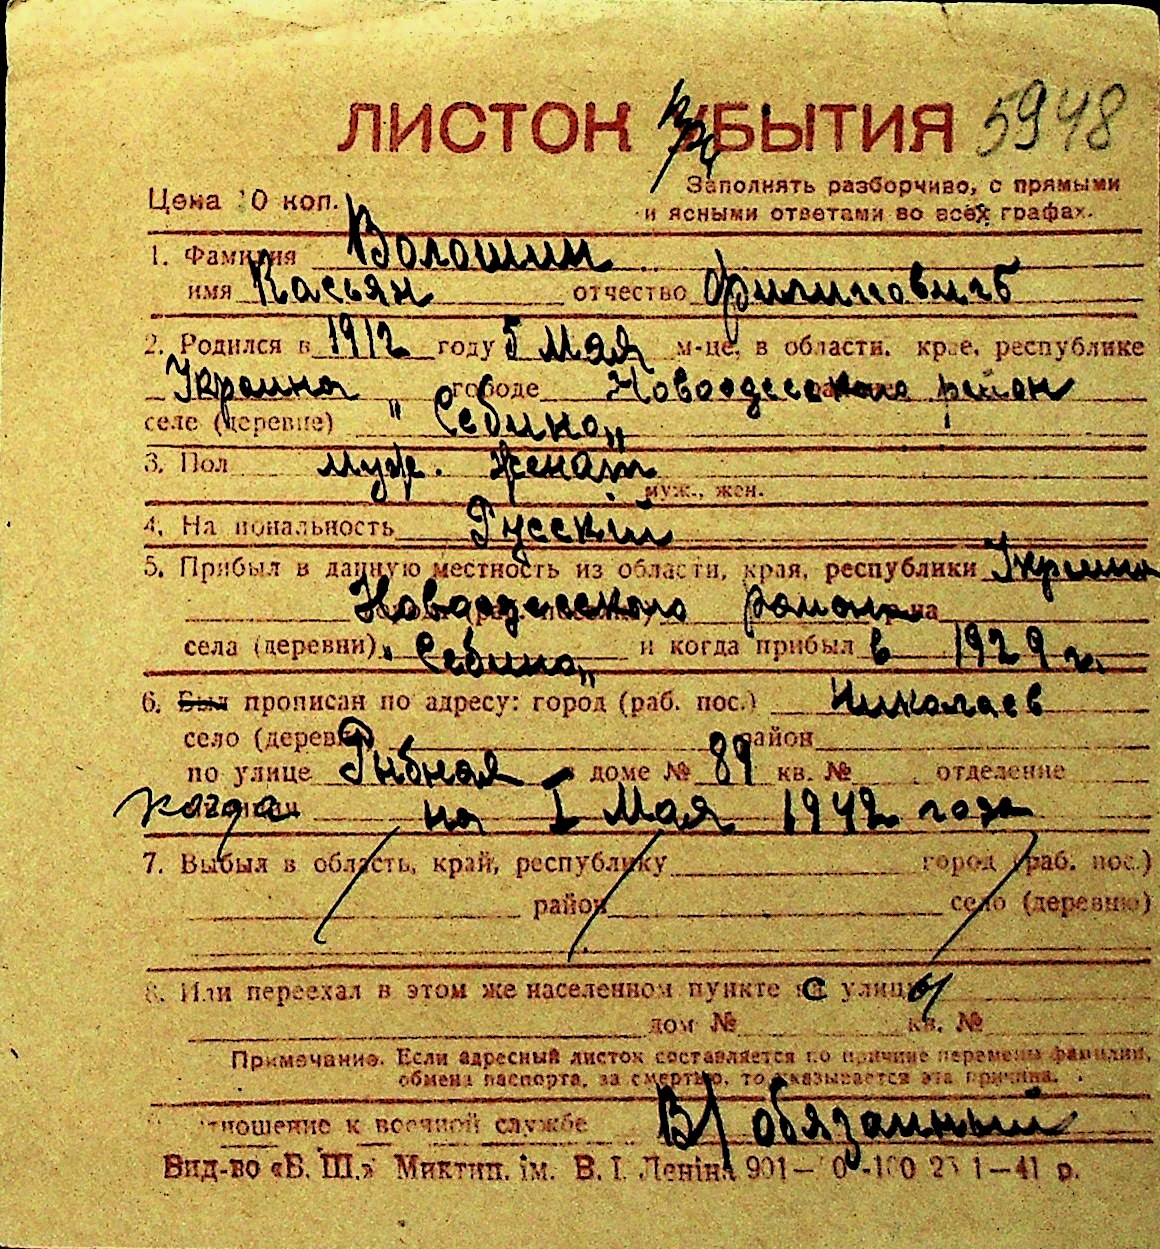 ЛИСТОК при УБЫТИЯ 5948
Цена 10 коп.
Заполнять разборчиво, с прямыми
и ясными ответами во всех графах.
1. Фамилия Волошин
имя Касьян отчество Филипович
2. Родился в 1912 году 5 мая м-це, в области, крае, республике
Украина городе Новоодесского район
селе (деревне) "Себино„
3. Пол муж. женат
муж., жен.
4. Национальность Русский
5. Прибыл в данную местность из области, края, республики Украина
Новоодесского района
села (деревни) „Себино„ и когда прибыл в 1929 г.
6. Был прописан по адресу: город (раб. пос.) Николаев
село (деревня) район
по улице Рыбная в доме № 89 кв. № отделение
когда на 1 Мая 1942 года
7. Выбыл в область, край, республику город (раб. пос.)
район село (деревню)
8. Или переехал в этом же населенном пункте с улицы
дом № кв. №
Примечание. Если адресный листок составляется по причине перемены фамилии,
обмена паспорта, за смертью, то указывается эта причина.
отношение к военной службе В/обязанный
Вид-во «Б. Ш.» Миктип. ім. В. І. Леніна 901— 1—41 р.